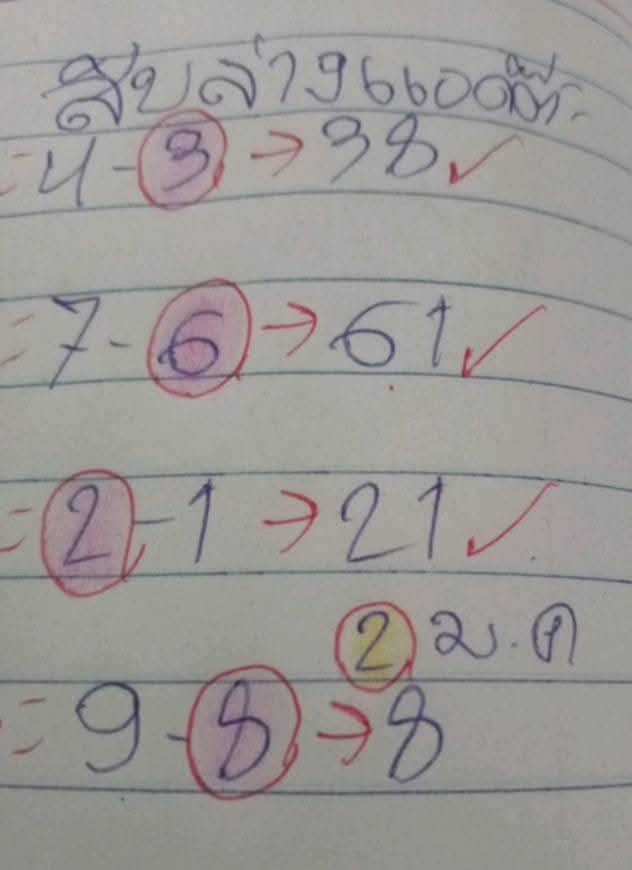 สิบล่าง
= 4 - 3 → 38 ✓
= 7 - 6 → 61 ✓
= 2 - 1 → 21 ✓
2 ม.ค
= 9 - 8 → 8